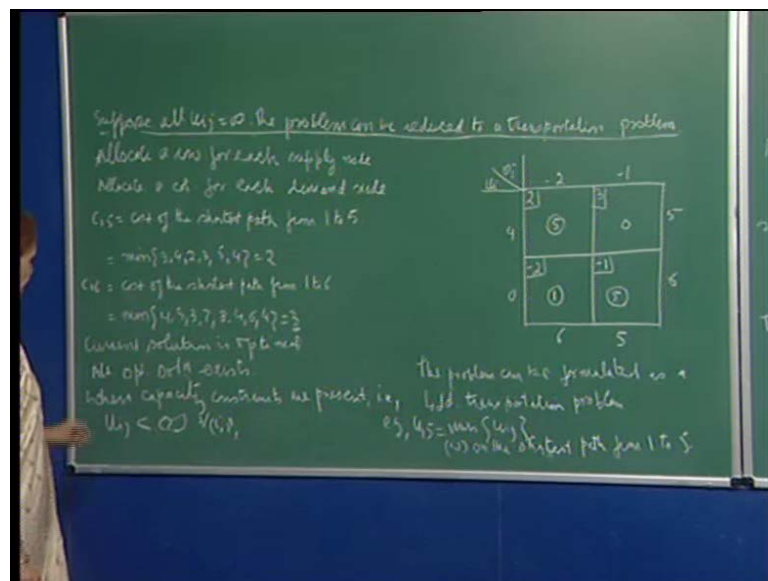 Suppose all uij = ∞. The problem can be reduced to a transportation problem
Allocate a row for each supply node
Allocate a col. for each demand node
C15 = cost of the shortest path from 1 to 5
= min{3,4,2,3,5,4} = 2
C16 = cost of the shortest path from 1 to 6
= min{4,5,3,7,8,4,6,4} = 3
Current solution is optimal
No opt. soln exists
When capacity constraints are present, i.e.,
uij < ∞ ∀(i,j),
vj
ui -2 -1
4 2 5 3 0 5
0 -2 1 -1 5 6
6 5
The problem can be formulated as a
transportation problem
eg, u15 = min{uij}
(i,j) on the shortest path from 1 to 5